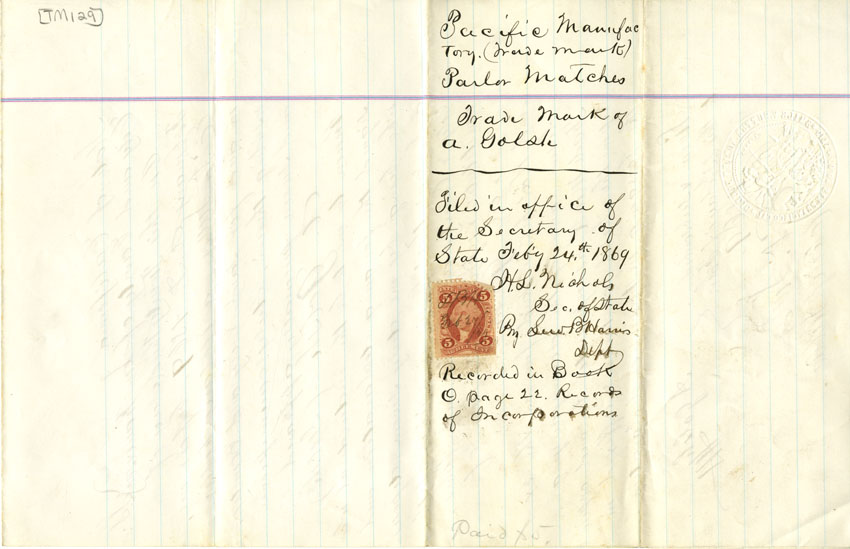 [TM129]
Pacific Manufac
tory. (Trade Mark)
Parlor Matches
Trade Mark of
A. Golsh
Filed in office of
the Secretary of
State Feby 24.th 1869
H.L. Nichols
Sec. of State
By Lew B Harris
Dept
5 5
5 5
Recorded in Book
O. page 22. Records
of Incorporations
Paid $5.